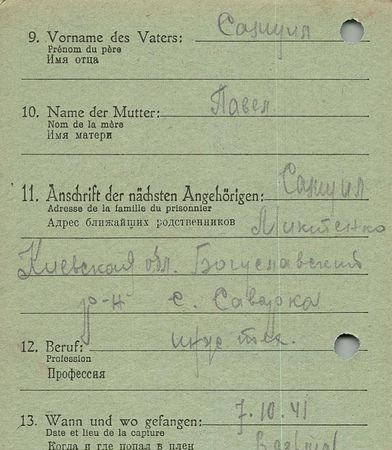 9. Vorname des Vaters: Самуил
Prénom du père
Имя отца
10. Name der Mutter: Павел
Nom de la mère
Имя матери
11. Anschrift der nächsten Angehörigen: Самуил
Adresse de la famille du prisonnier
Адрес ближайших родственников Микитенко
Киевская обл. Богуславский
р-н с. Саварка
12. Beruf:
Profession
Профессия
13. Wann und wo gefangen: 7.10.41
Date et lieu de la capture
Когда и где попал в плен